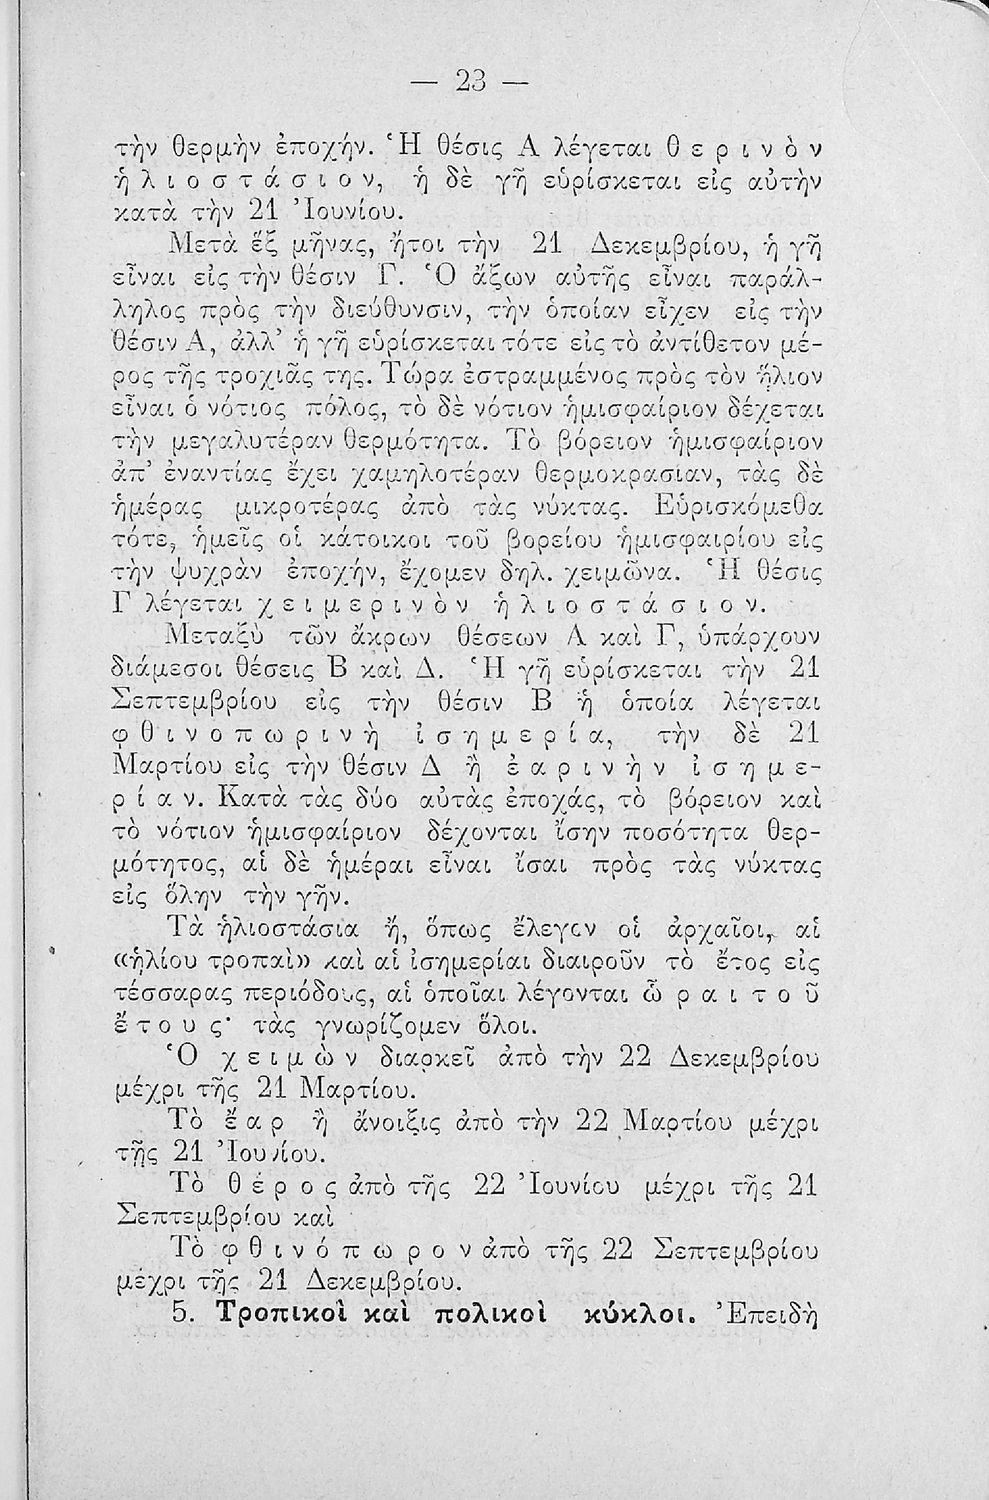 — 23 —
τὴν θερμὴν ἐποχήν. Ἡ θέσις Α λέγεται θ ε ρ ι ν ὸ ν
ἡ λ ι ο σ τ ά σ ι ο ν, ἡ δὲ γῆ εὑρίσκεται εἰς αὐτὴν
κατὰ τὴν 21 Ἰουνίου.
Μετὰ ἓξ μῆνας, ἤτοι τὴν 21 Δεκεμβρίου, ἡ γῆ
εἶναι εἰς τὴν θέσιν Γ. Ὁ ἄξων αὐτῆς εἶναι παράλ-
ληλος πρὸς τὴν διεύθυνσιν, τὴν ὁποίαν εἶχεν εἰς τὴν
θέσιν Α, ἀλλ’ ἡ γῆ εὑρίσκεται τότε εἰς τὸ ἀντίθετον μέ-
ρος τῆς τροχιᾶς της. Τώρα ἐστραμμένος πρὸς τὸν ἥλιον
εἶναι ὁ νότιος πόλος, τὸ δὲ νότιον ἡμισφαίριον δέχεται
τὴν μεγαλυτέραν θερμότητα. Τὸ βόρειον ἡμισφαίριον
ἀπ’ ἐναντίας ἔχει χαμηλοτέραν θερμοκρασίαν, τὰς δὲ
ἡμέρας μικροτέρας ἀπὸ τὰς νύκτας. Εὑρισκόμεθα
τότε, ἡμεῖς οἱ κάτοικοι τοῦ βορείου ἡμισφαιρίου εἰς
τὴν ψυχρὰν ἐποχήν, ἔχομεν δηλ. χειμῶνα. Ἡ θέσις
Γ λέγεται χ ε ι μ ε ρ ι ν ὸ ν ἡ λ ι ο σ τ ά σ ι ο ν.
Μεταξὺ τῶν ἄκρων θέσεων Α καὶ Γ, ὑπάρχουν
διάμεσοι θέσεις Β καὶ Δ. Ἡ γῆ εὑρίσκεται τὴν 21
Σεπτεμβρίου εἰς τὴν θέσιν Β ἡ ὁποία λέγεται
φ θ ι ν ο π ω ρ ι ν ὴ ἰ σ η μ ε ρ ί α, τὴν δὲ 21
Μαρτίου εἰς τὴν θέσιν Δ ἢ ἐ α ρ ι ν ὴ ν ἰ σ η μ ε-
ρ ί α ν. Κατὰ τὰς δύο αὐτὰς ἐποχάς, τὸ βόρειον καὶ
τὸ νότιον ἡμισφαίριον δέχονται ἴσην ποσότητα θερ-
μότητος, αἱ δὲ ἡμέραι εἶναι ἴσαι πρὸς τὰς νύκτας
εἰς ὅλην τὴν γῆν.
Τὰ ἡλιοστάσια ἤ, ὅπως ἔλεγον οἱ ἀρχαῖοι, αἱ
«ἡλίου τροπαὶ» καὶ αἱ ἰσημερίαι διαιροῦν τὸ ἔτος εἰς
τέσσαρας περιόδους, αἱ ὁποῖαι λέγονται ὧ ρ α ι τ ο ῦ
ἔ τ ο υ ς· τὰς γνωρίζομεν ὅλοι.
Ὁ χ ε ι μ ὼ ν διαρκεῖ ἀπὸ τὴν 22 Δεκεμβρίου
μέχρι τῆς 21 Μαρτίου.
Τὸ ἔ α ρ ἢ ἄνοιξις ἀπὸ τὴν 22 Μαρτίου μέχρι
τῆς 21 Ἰουνίου.
Τὸ θ έ ρ ο ς ἀπὸ τῆς 22 Ἰουνίου μέχρι τῆς 21
Σεπτεμβρίου καὶ
Τὸ φ θ ι ν ό π ω ρ ο ν ἀπὸ τῆς 22 Σεπτεμβρίου
μέχρι τῆς 21 Δεκεμβρίου.
5. Τροπικοὶ καὶ πολικοὶ κύκλοι. Ἐπειδὴ